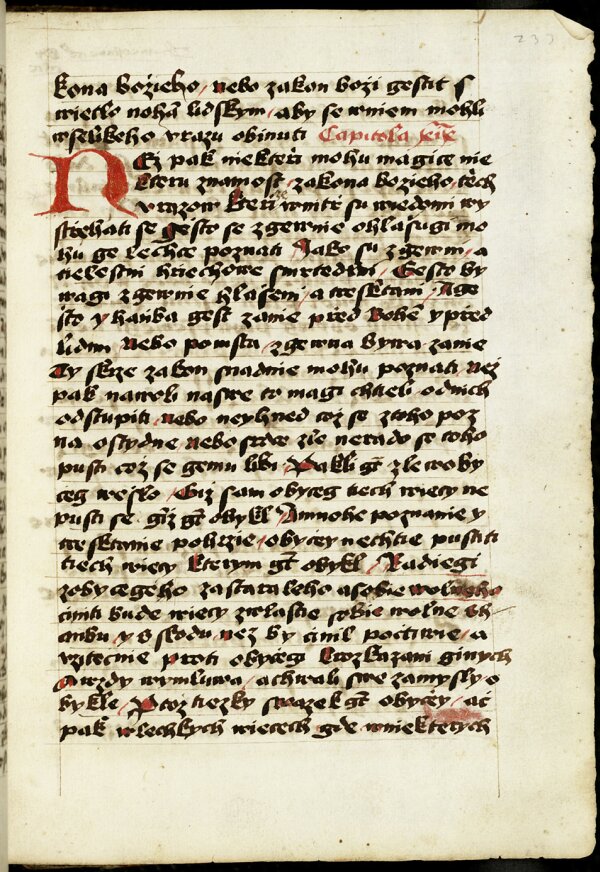 233
kona božieho / nebo zakon boži gestit s
wietlo noham lidskym / aby se wniem mohli
wselikeho vrazu obinuti Capitola xix
NEž pak niekteři mohu magice nie
kteru znamost / zakona božieho / těch
vrazow kteři wnitř su wiedomi wy
střehati se / gesto se zgewnie ohlašugi mo
hu ge lechce poznati Jako su zgewni / a
tielestni hřiechowe smrtedlni / Gesto by
wagi zgewnie hlašeni / a tresktani / Age
što y hanba gest zanie před Bohem ypřed
lidmi Nebo pomsta / zgewna bywa zanie
Ty skrze zakon snadnie mohu poznati / než
pak nawoli naswe to magi chtieli odnich
odstupiti / nebo neyhned což se ztoho poz
na ostydne / nebo srdce zle nerado se toho
pusti což se gemu libi / Pakli gt zle woby
čeg wešlo / Giž sam obyčeg tiech wiecy ne
pusti se giž gt obykl Amnohe poznanie y
tresktanie pohrzie / obyčey nechtie pustiti
tiech wiecy kterym gt obykl / Radiegi
zobyčegeho zastaraleho asobie wolneho
činiti bude wiecy zwlastie sobie wolne Sh
anbu / y s sskodu / než by činil poctiwie / a
vžitečnie proti obyčegi krozkazani ginych
Awzdy wymluwa / achwali swe zamysly o
bykle / Protož tiezky swazek gt obyčey / ač
pak wlechkych wiecech gde wniekterych